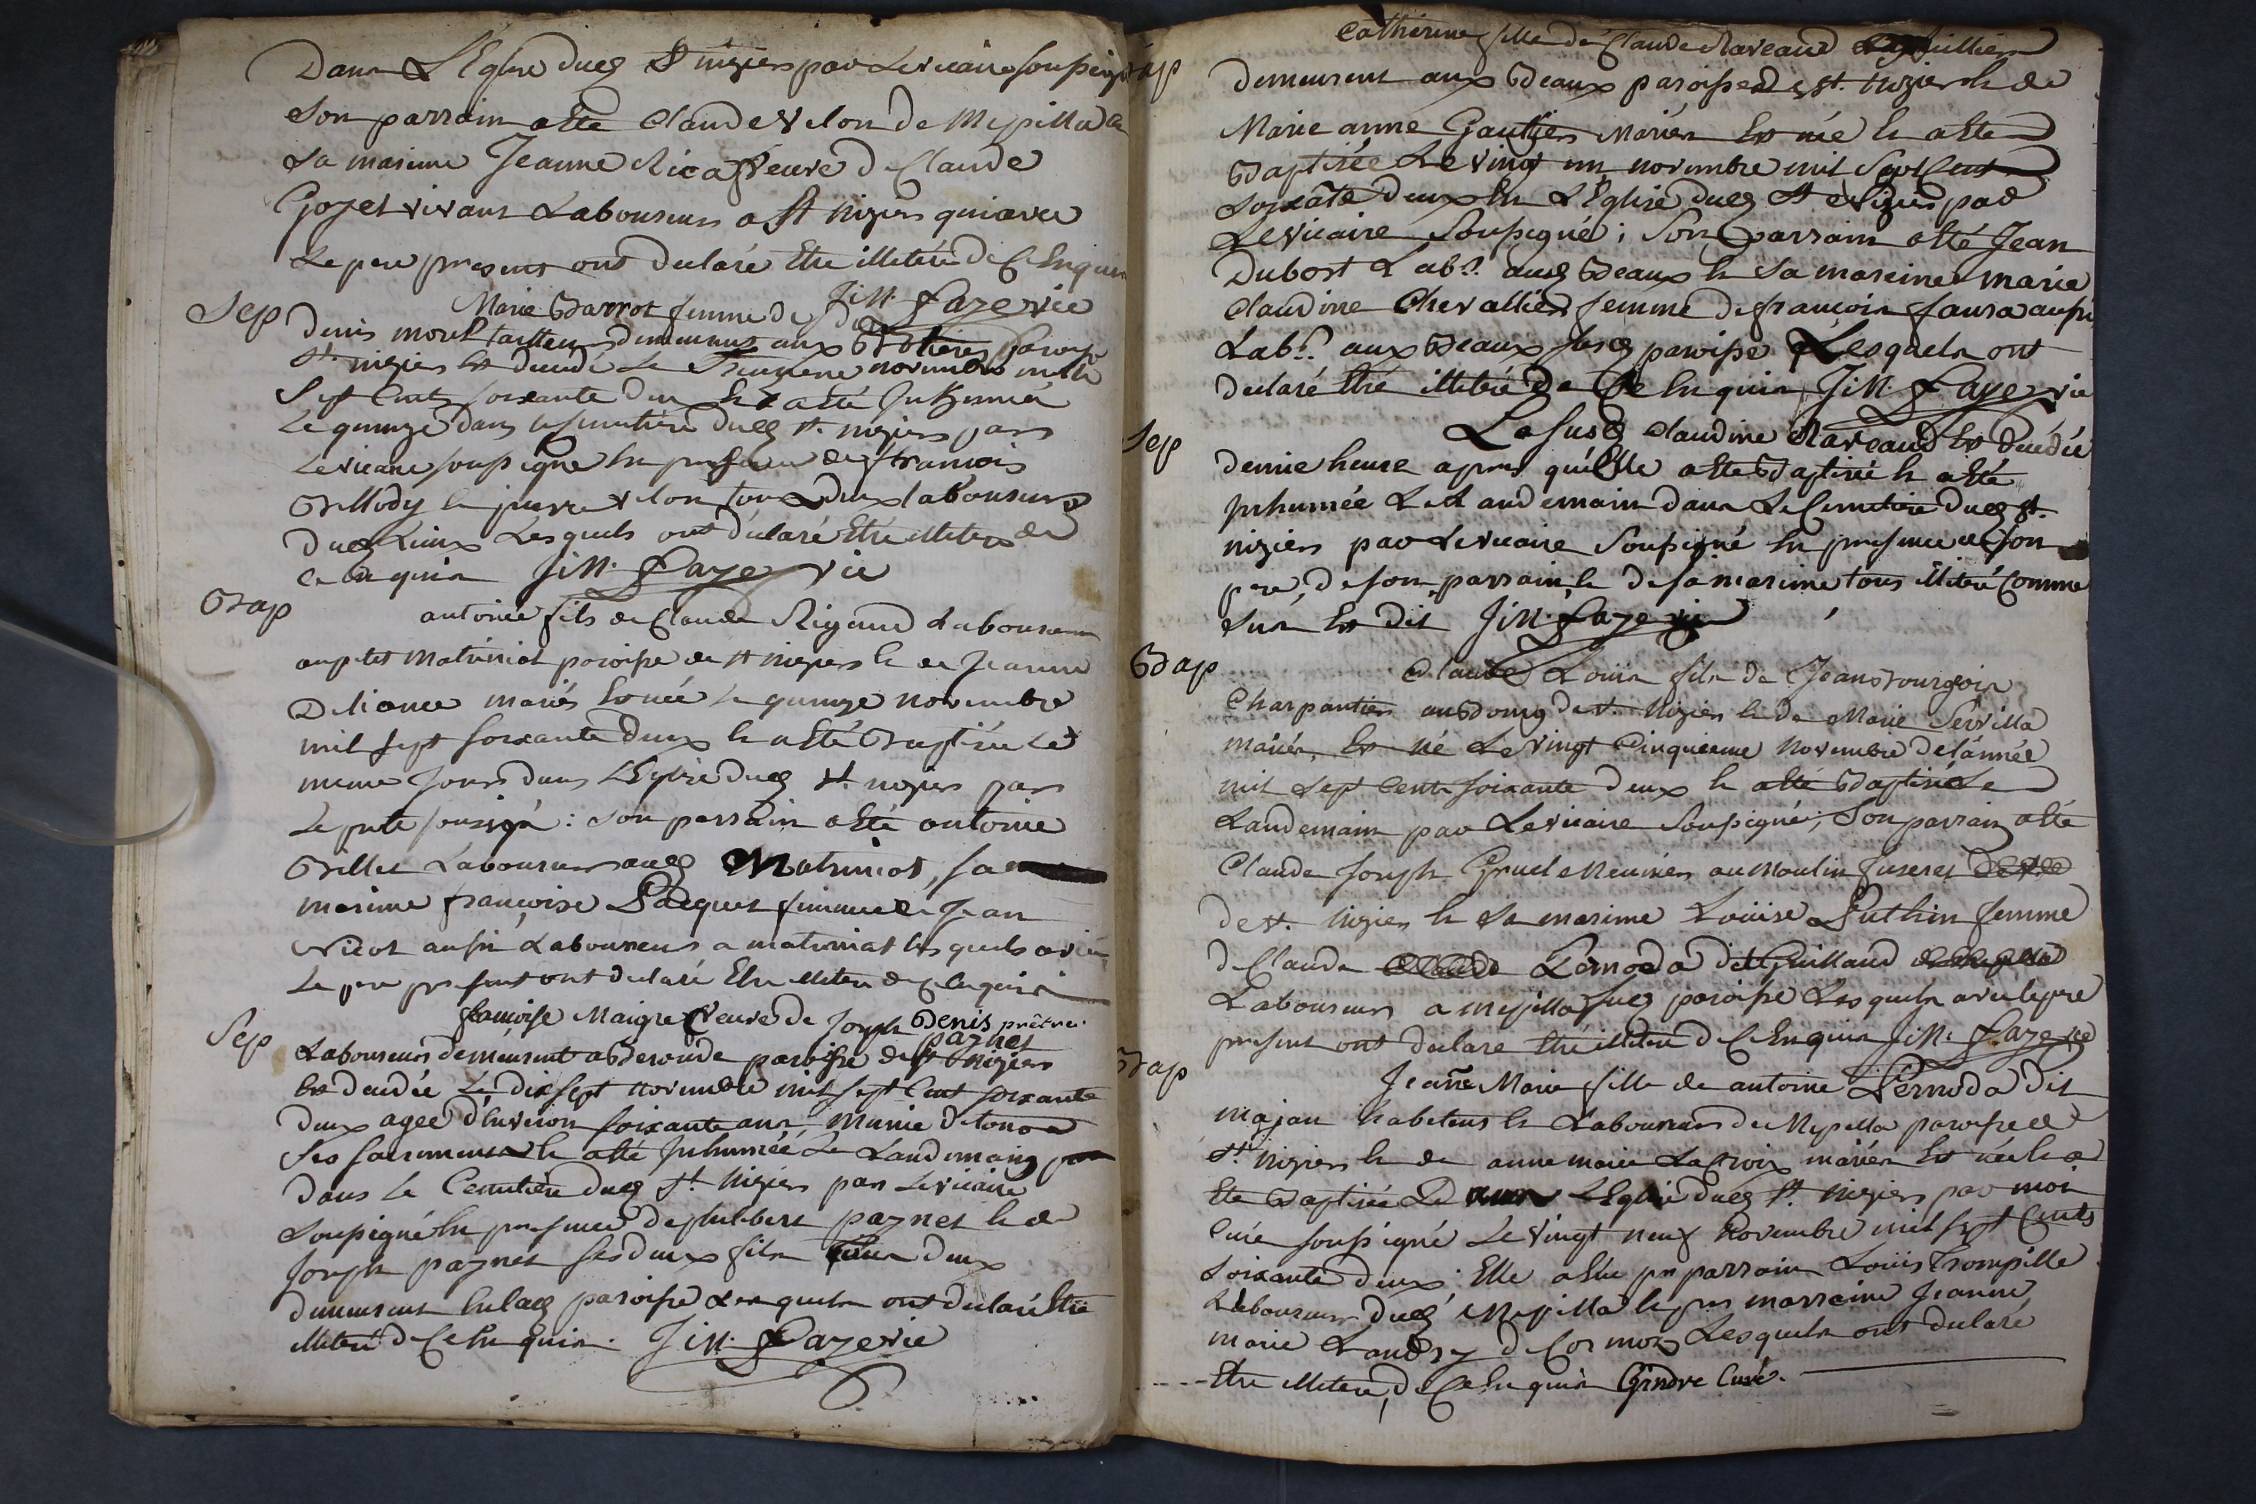 Dans L'Eglise dud St nizier par Le vicaire soussigné
Son parrain a été Claude Velon de Mepilla et
Sa marine Jeanne Rica veuve de Claude
Goyet vivant Laboureur a St nizier qui avec
Le pere present ont declaré Etre illiteré de ce Enquis
J: M: Faze vic
Sep Marie Barrot femme de
denis morel tailleur demeurant aux parois
St nizier Est decedé Le novembre mille
Sept Cent soixante deux Et a été Inhumée
Le quinze dans le simetiere dud St nizier par
Le vicaire soussigné En presence de francois
Billody Et pierre velon tous deux laboureurs
dud Lieux Lesquels ont declaré Etre illiteré de
ce Enquis J: M: Faze vic
Bap antoine fils de Claude Rigaud Laboureur
au ptet Matriniat paroisse de St nizier Et de Jeanne
Deliance mariés Est née Le quinze novembre
mil sept soixante deux Et a été Baptisée Le
meme Jour dans L'Eglise dud St nizier par
Le prte sousigné : son parrain a été antoine
Billet Laboureur aud Matriniat, sa
marine françoise Pacquet femme de Jean
Nicot aussi Laboureur a matriniat Les quels avec
Le pere present ont declaré Etre illiteré de ce Enquis
Sep françoise Maigre Veuve de Joseph Denis prêtre
paznet
Laboureur demeurant a Beronde paroisse de St Nizier
Est decedée Le dix sept novembre mil sept Cent soixante
deux agée d'Environ soixante ans, Munie de tous
Ses sacremens Et a été Inhumée Le Landemain
dans Le Cemetiere dud St Nizier par Le vicaire
Soussigné En presence de philibert paznet Et de
Joseph paznet ses deux fils tous deux
demeurant En lad paroisse Lesquels ont declaré Etre
illiteré de Ce Enquis. J: M: Faze vic
Bap Catherine fille de Claude Raveaud
demeurent aux Beaux paroisse de St. Nizier Et de
Marie anne Gautier Mariés Est née Et a été
Baptisée Le vingt un novembre mil Sept Cent
soixante deux En L'Eglise dud St nizier par
Le vicaire Soussigné ; Son parrain a été Jean
Dubost Labr. aud Beaux Et Sa mareine marie
Claudine Chevallier femme de françois faura aussi
Labr. aux Beaux susd paroisse Lesquels ont
declaré Etre illiteré de Ce Enquis J: M: Faye vic
Sep La susd Claudine Raveaud Est decedée
demie heure apres qu'Elle a été Baptisée Et a été
Inhumée Le Landemain dans Le Cimetiere dud St.
nizier par Le vicaire Soussigné En presence de son
pere, de son parrain, Et de sa marine tous illiteré Comme
Sus Est dit J: M: Faze vic
Bap Claude Louis fils de Jean Bourgois
Charpantier au Bourg de St. Nizier Et de Marie Servilla
mariés, Est né Le vingt Cinquieme Novembre de l'année
mil Sept Cent soixante deux Et a été Baptisé Le
Landemain par Le vicaire Soussigné, Son parrain a été
Claude Joseph Gruel Meunier au Moulin Juseret
de St. Nizier Et Sa marine Louise Puthin femme
de Claude Pernoda dit Guillaud
Laboureur a Mepilla sud paroisse Lesquels avec le pere
present ont declaré Etre illiteré de Ce Enquis J: M: Faze vic
Bap Jeanne Marie fille de antoine Pernoda dit
majau habitans Et Laboureur de Mepilla paroisse de
St. Nizier Et de anne marie Lacroix mariés Est née Et a
Ete Baptisée L'Eglise dud St. nizier par moi
Curé soussigné Le vingt neuf Novembre mil sept Cents
Soixante deux : Elle a Eu pr parrain Louis Trompille
Laboureur dud Mepilla Et pr marraine Jeanne
marie Landry de Cormoz Lesquels ont declaré
Etre illiteré, de Ce Enquis Gindre Curé.